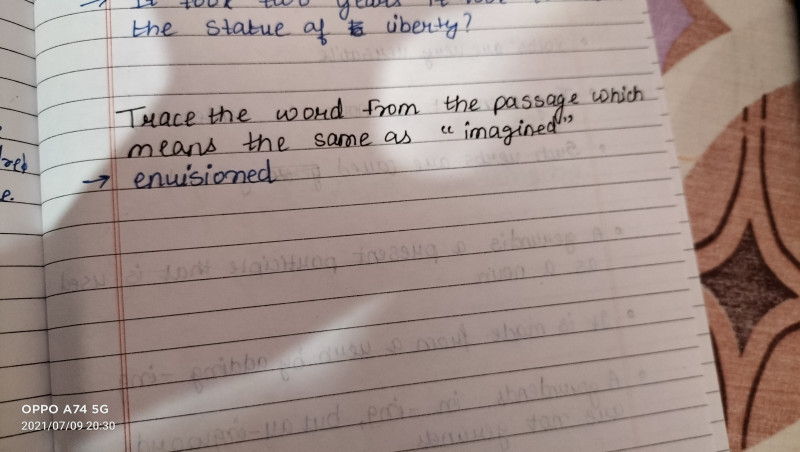 → It took two years
the statue of liberty?
Trace the word from the passage which
means the same as "imagined"
→ envisioned
e.
OPPO A74 5G
2021/07/09 20:30